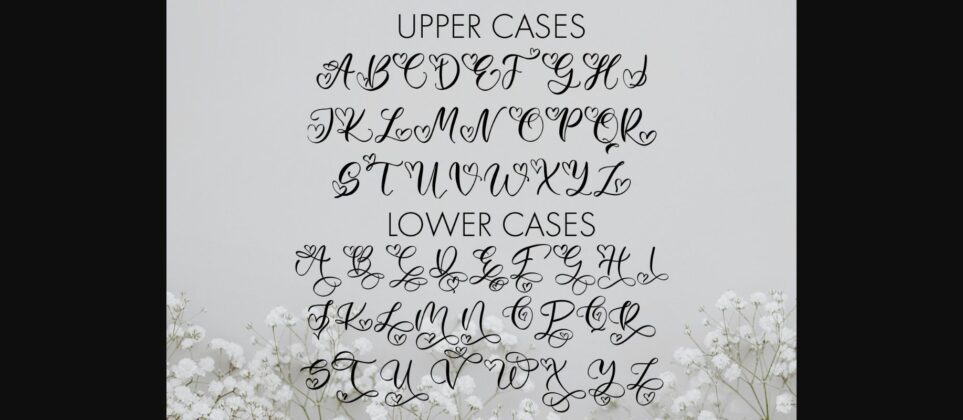 UPPER CASES
ABCDEFGHI
JKLMNOPQR
STUVWXYZ
LOWER CASES
A B C D E F G H I
J K L M N O P Q R
S T U V W X Y Z